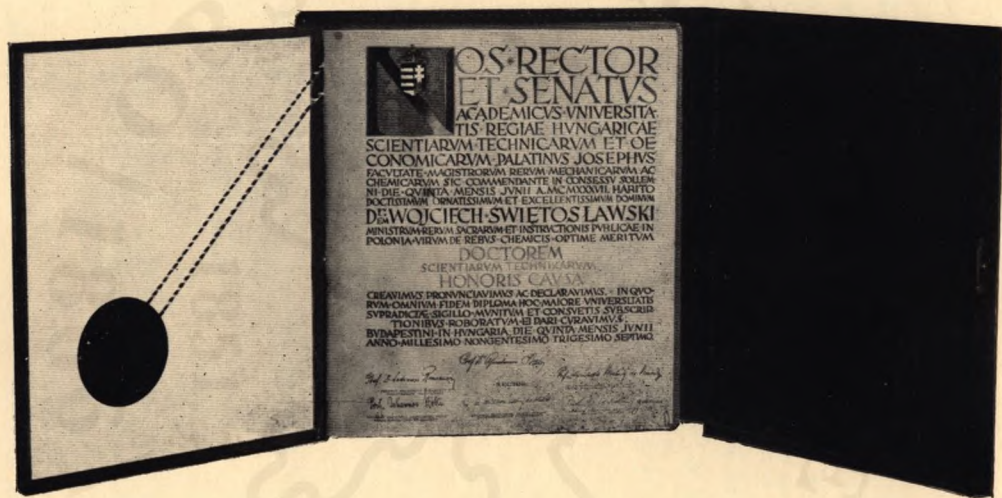 NOS·RECTOR
ET·SENATVS
ACADEMICVS·VNIVERSITA-
TIS·REGIAE·HVNGARICAE
SCIENTIARVM·TECHNICARVM·ET·OE
CONOMICARVM·PALATINVS·JOSEPHVS
FACVLTATE·MAGISTRORVM·RERVM·MECHANICARVM·AC
CHEMICARVM·SIC·COMMENDANTE·IN·CONSESSV·SOLLEM-
NI·DIE·QVINTA·MENSIS·JVNII·A·MCMXXXVII·HABITO
DOCTISSIMVM·ORNATISSIMVM·ET·EXCELLENTISSIMVM·DOMINVM
WOJCIECH·SWIETOSLAWSKI
MINISTRVM·RERVM·SACRARVM·ET·INSTRVCTIONIS·PVBLICAE·IN
POLONIA·VIRVM·DE·REBVS·CHEMICIS·OPTIME·MERITVM
DOCTOREM
SCIENTIARVM TECHNICARVM
HONORIS CAVSA
CREAVIMVS·PRONVNCIAVIMVS·AC·DECLARAVIMVS·IN·QVO-
RVM·OMNIVM·FIDEM·DIPLOMA·HOC·MAIORE·VNIVERSITATIS
SVPRADICTAE·SIGILLO·MVNITVM·ET·CONSVETIS·SVBSCRIP-
TIONIBVS·ROBORATVM·EI·DARI·CVRAVIMVS·
BVDAPESTINI·IN·HVNGARIA·DIE·QVINTA·MENSIS·JVNII
ANNO·MILLESIMO·NONGENTESIMO·TRIGESIMO·SEPTIMO